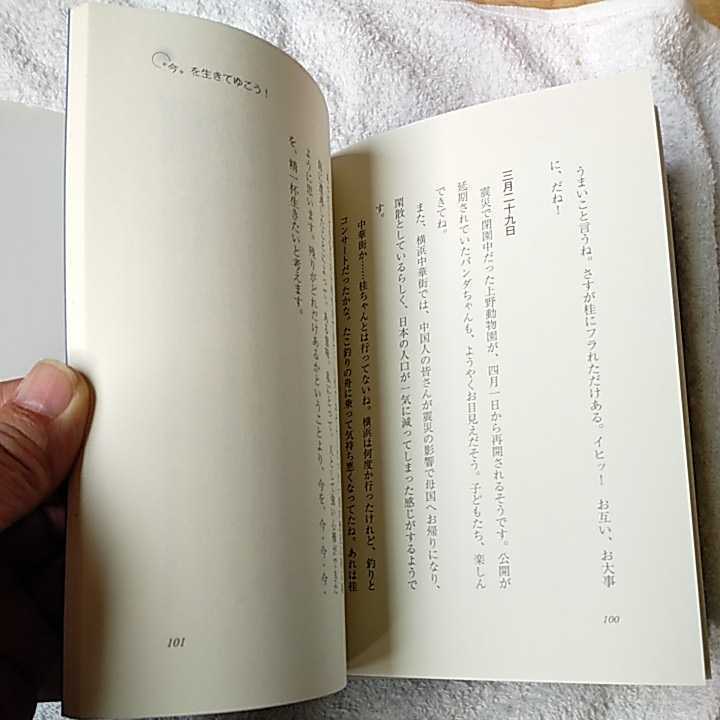 うまいこと言うね。さすが桂にフラれただけある。イヒッ！　お互い、お大事
に、だね！
三月二十九日
震災で閉園中だった上野動物園が、四月一日から再開されるそうです。公開が
延期されていたパンダちゃんも、ようやくお目見えだそう。子どもたち、楽しん
できてね。
また、横浜中華街では、中国人の皆さんが震災の影響で母国へお帰りになり、
閑散としているらしく、日本の人口が一気に減ってしまった感じがするようで
す。
中華街か……桂ちゃんとは行ってないね。横浜は何度か行ったけれど、釣りと
コンサートだったかな。たこ釣りの舟に乗って気持ち悪くなってたね。あれは桂
100
〝今〟を生きてゆこう！
ように思います。残りがどれだけあるかということより、今を、今・今・今・
を、精一杯生きたいと考えます。
101